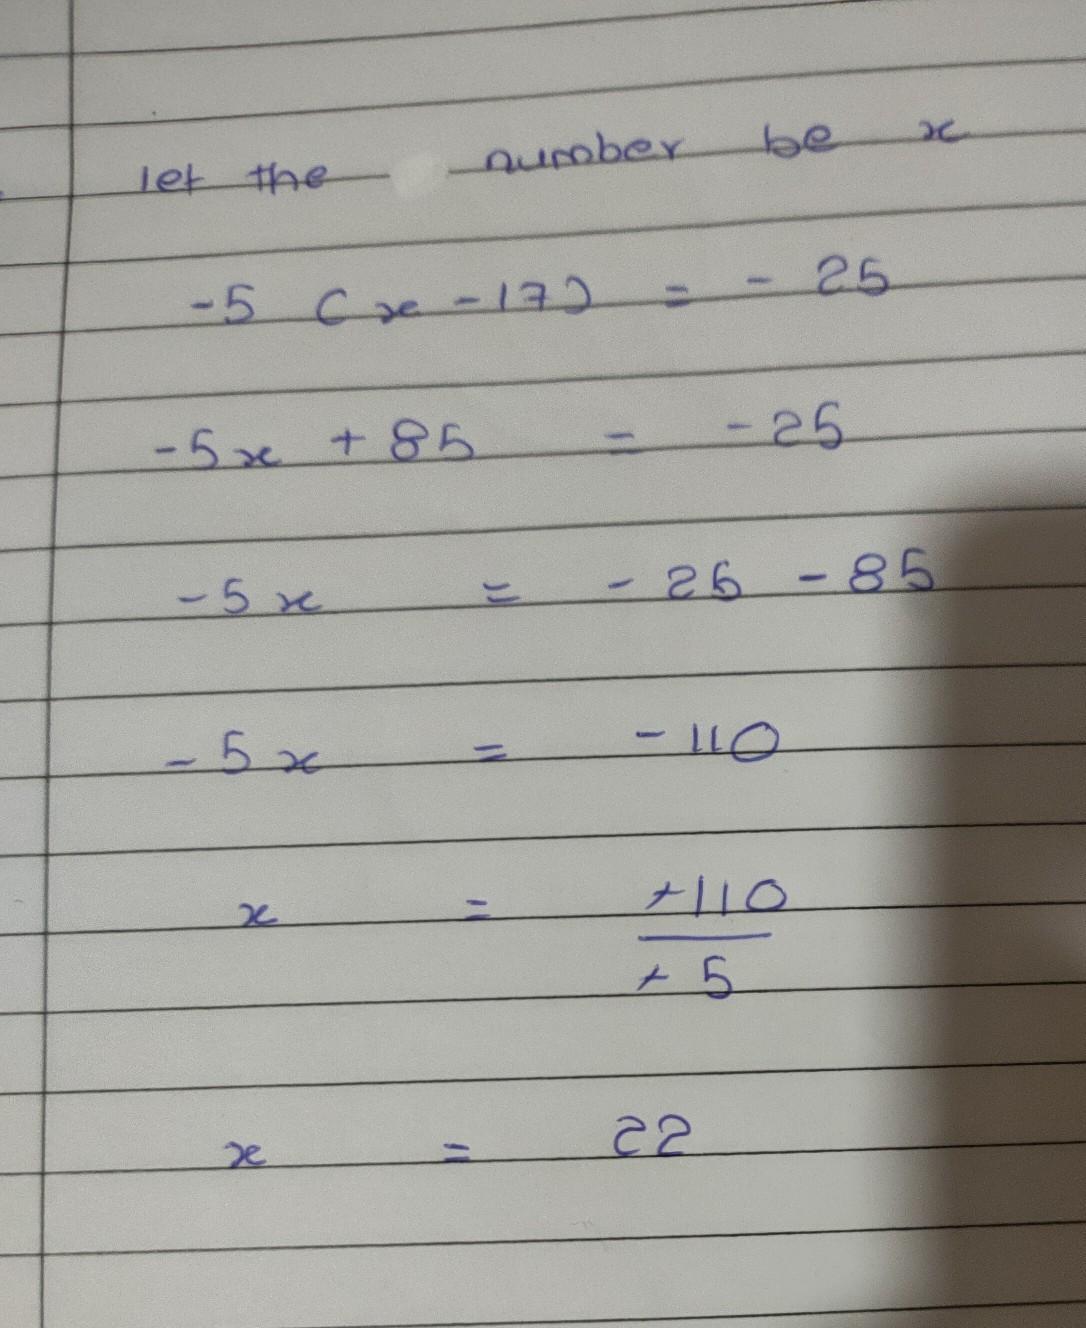 let the number be x
-5 (x - 17) = - 25
-5x + 85 = - 25
-5x = - 25 - 85
-5x = - 110
x = +110
+ 5
x = 22